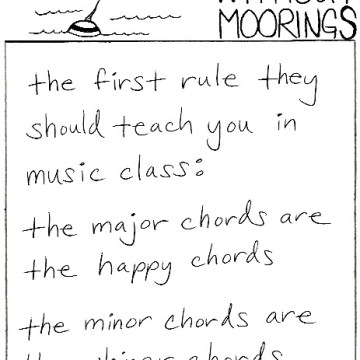 MOORINGS
the first rule they
should teach you in
music class:
the major chords are
the happy chords
the minor chords are
chords